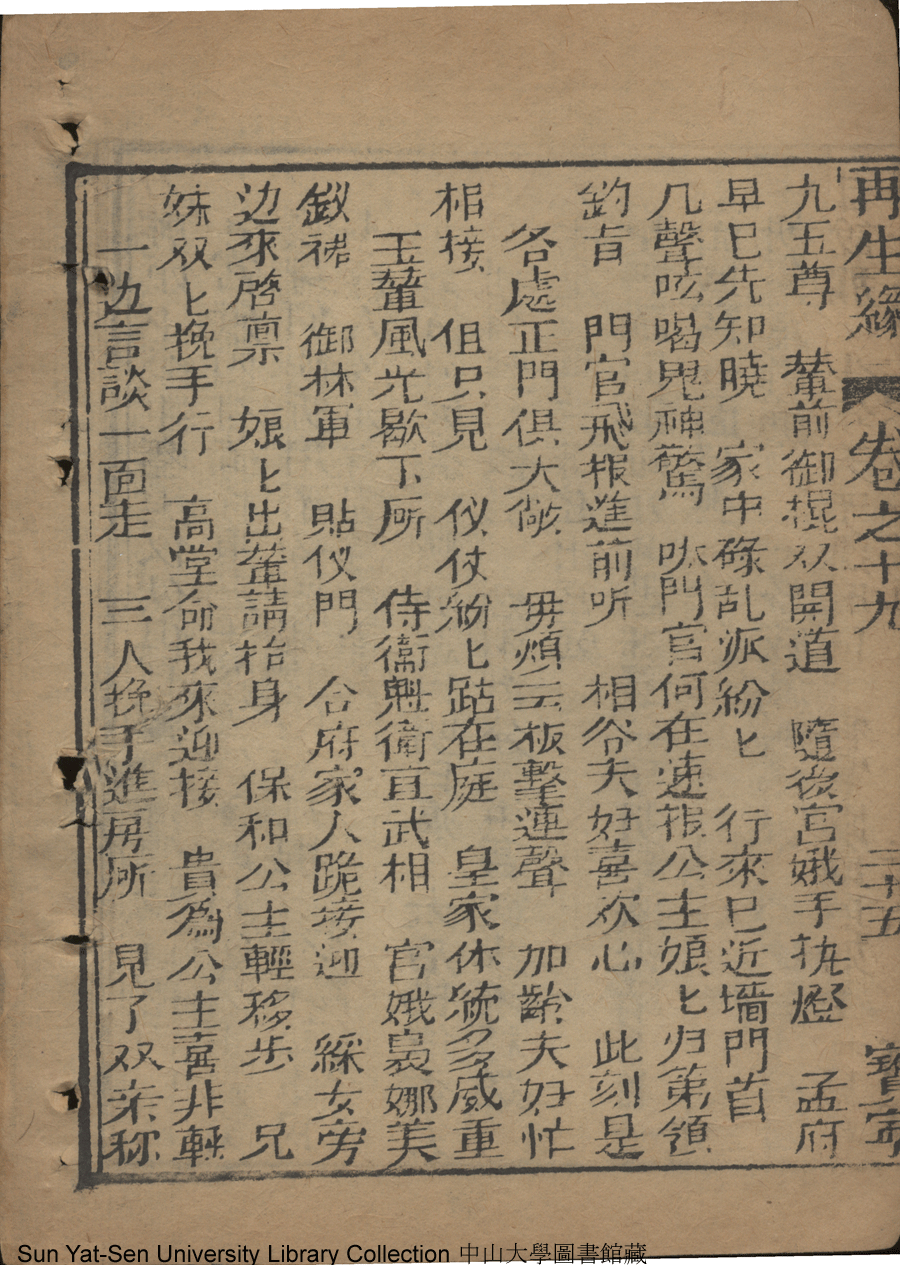 再生緣 卷之十九 二十五 寶寧
九五尊 輦前御棍双開道 隨後宮娥手执燈 孟府
早已先知曉 家中碌乱派紛匕 行來已近墻門首
几聲吆喝鬼神驚 吓門官何在速报公主娘匕归第領
鈞旨 門官飛报進前听 相谷夫妇喜欢心 此刻是
各處正門俱大敞 毋煩云板擊連聲 加齡夫妇忙
相接 伹只見 仪仗紛匕跕在庭 皇家体統多威重
玉輦風光歇下所 侍衛魁衛直武相 官娥裊娜美
釵裙 御林軍 貼仪門 合府家人跪接迎 綵女旁
边來啓禀 娘匕出輦請抬身 保和公主輕移步 兄
妹双匕挽手行 高堂命我來迎接 貴為公主喜非輕
一边言談一面走 三人挽手進房所 見了双亲称
Sun Yat-Sen University Library Collection 中山大學圖書館藏